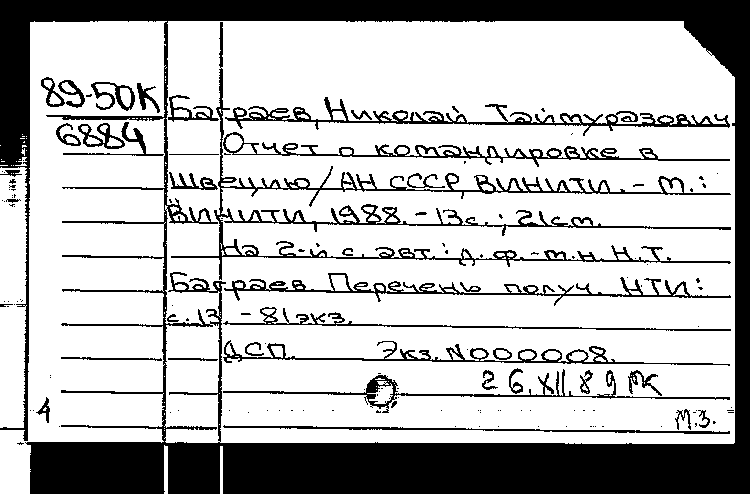 89-50К
6884
Баграев, Николай Таймуразович.
Отчет о командировке в
Швецию / АН СССР, ВИНИТИ. - М.:
ВИНИТИ, 1988. - 13с.; 21см.
На 2-й с. авт.: д. ф.-м.н. Н.Т.
Баграев. Перечень получ. НТИ:
с. 13. - 81экз.
ДСП. Экз. N000008.
26.XII.89 МК
4
М.З.